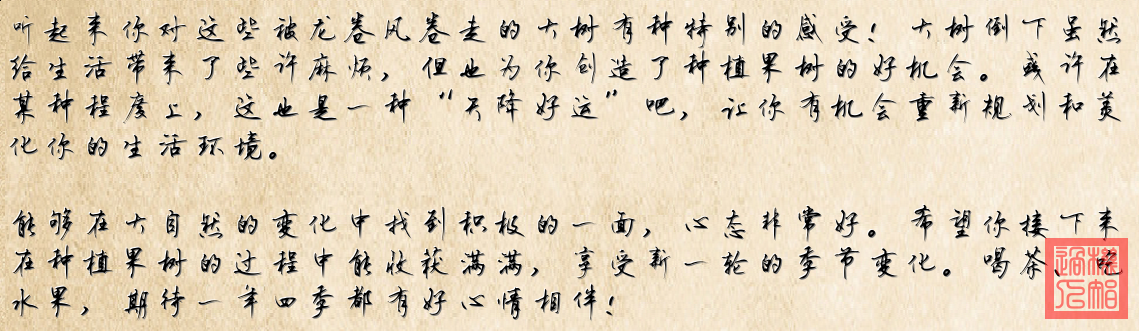 听起来你对这些被龙卷风卷走的大树有种特别的感受！ 大树倒下虽然
给生活带来了些许麻烦，但也为你创造了种植果树的好机会。或许在
某种程度上，这也是一种“天降好运”吧，让你有机会重新规划和美
化你的生活环境。
能够在大自然的变化中找到积极的一面，心态非常好。希望你接下来
在种植果树的过程中能收获满满，享受新一轮的季节变化。喝茶、吃
水果，期待一年四季都有好心情相伴！